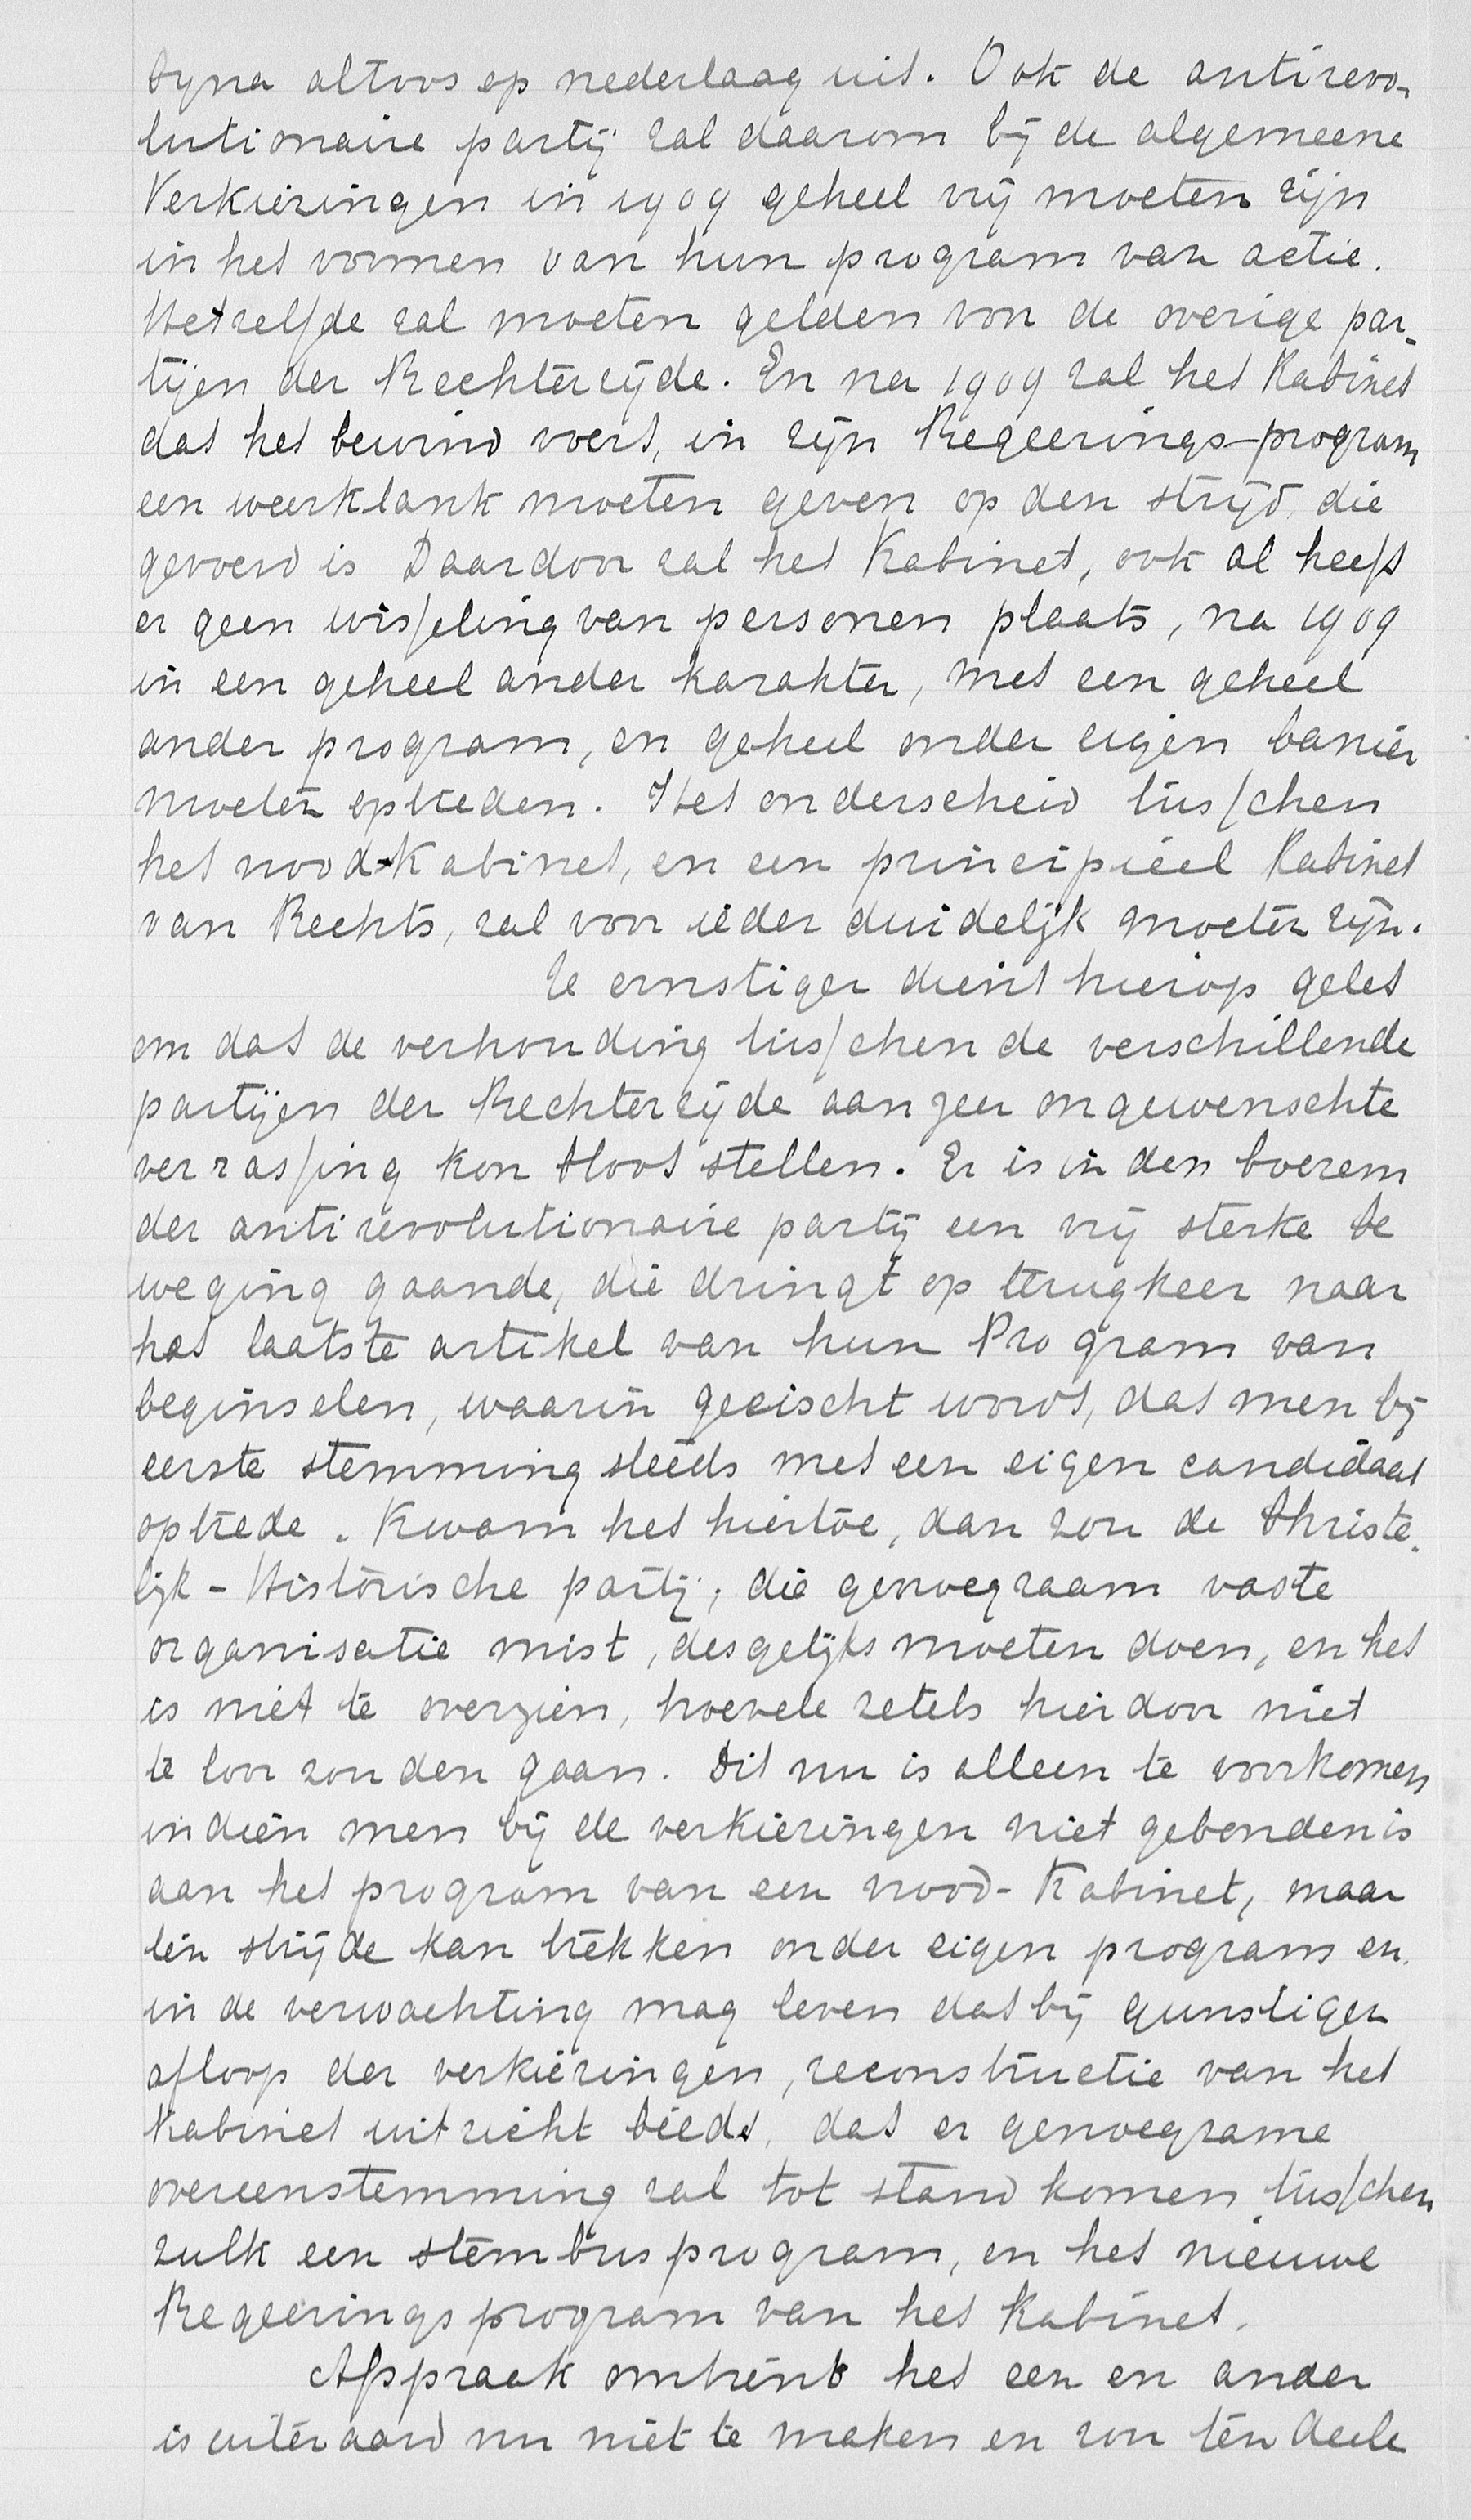 byna altoos op nederlaag uit. Ook de antirevo-
lutionaire partij zal daarom bij de algemeene
Verkiezingen in 1909 geheel vrij moeten zijn
in het vormen van hun program van actie.
Hetzelfde zal moeten gelden von de overige par-
tijen der Rechterzijde. En na 1909 zal het Kabinet
dat het bewind voert, in zijn Regeerings-program
een weerklank moeten geven op den strijd, die
gevoerd is Daardoor zal het Kabinet, ook al heeft
er geen wisseling van personen plaats, na 1909
in een geheel ander karakter, met een geheel
ander program, en geheel onder eigen banier
moeten optreden. Het onderscheid tusschen
het nood-Kabinet, en een principieel Kabinet
van Rechts, zal voor ieder duidelijk moeten zijn.
Te ernstiger dient hierop gelet
om dat de verhouding tusschen de verschillende
partijen der Rechterzijde aan zeer ongewenschte
verrassing kon bloot stellen. Er is in den boezem
der antirevolutionaire partij een vrij sterke be
weging gaande, die dringt op terugkeer naar
het laatste artikel van hun Program van
beginselen, waarin geeischt wordt, dat men bij
eerste stemming steeds met een eigen candidaat
optrede. Kwam het hiertoe, dan zou de Christe-
lijk-Historische partij, die genoegzaam vaste
organisatie mist, desgelijks moeten doen, en het
is niet te overzien, hoevele zetels hierdoor niet
te loor zouden gaan. Dit nu is alleen te voorkomen
indien men bij de verkiezingen niet gebonden is
aan het program van een nood-Kabinet, maar
ten strijde kan trekken onder eigen program en
in de verwachting mag leven dat bij gunstigen
afloop der verkiezingen, reconstructie van het
Kabinet uitzicht biedt, dat er genoegzame
overeenstemming zal tot stand komen tusschen
zulk een stembusprogram, en het nieuwe
Regeeringsprogram van het Kabinet.
Afspraak omtrent het een en ander
is uiteraard nu niet te maken en zou ten deele